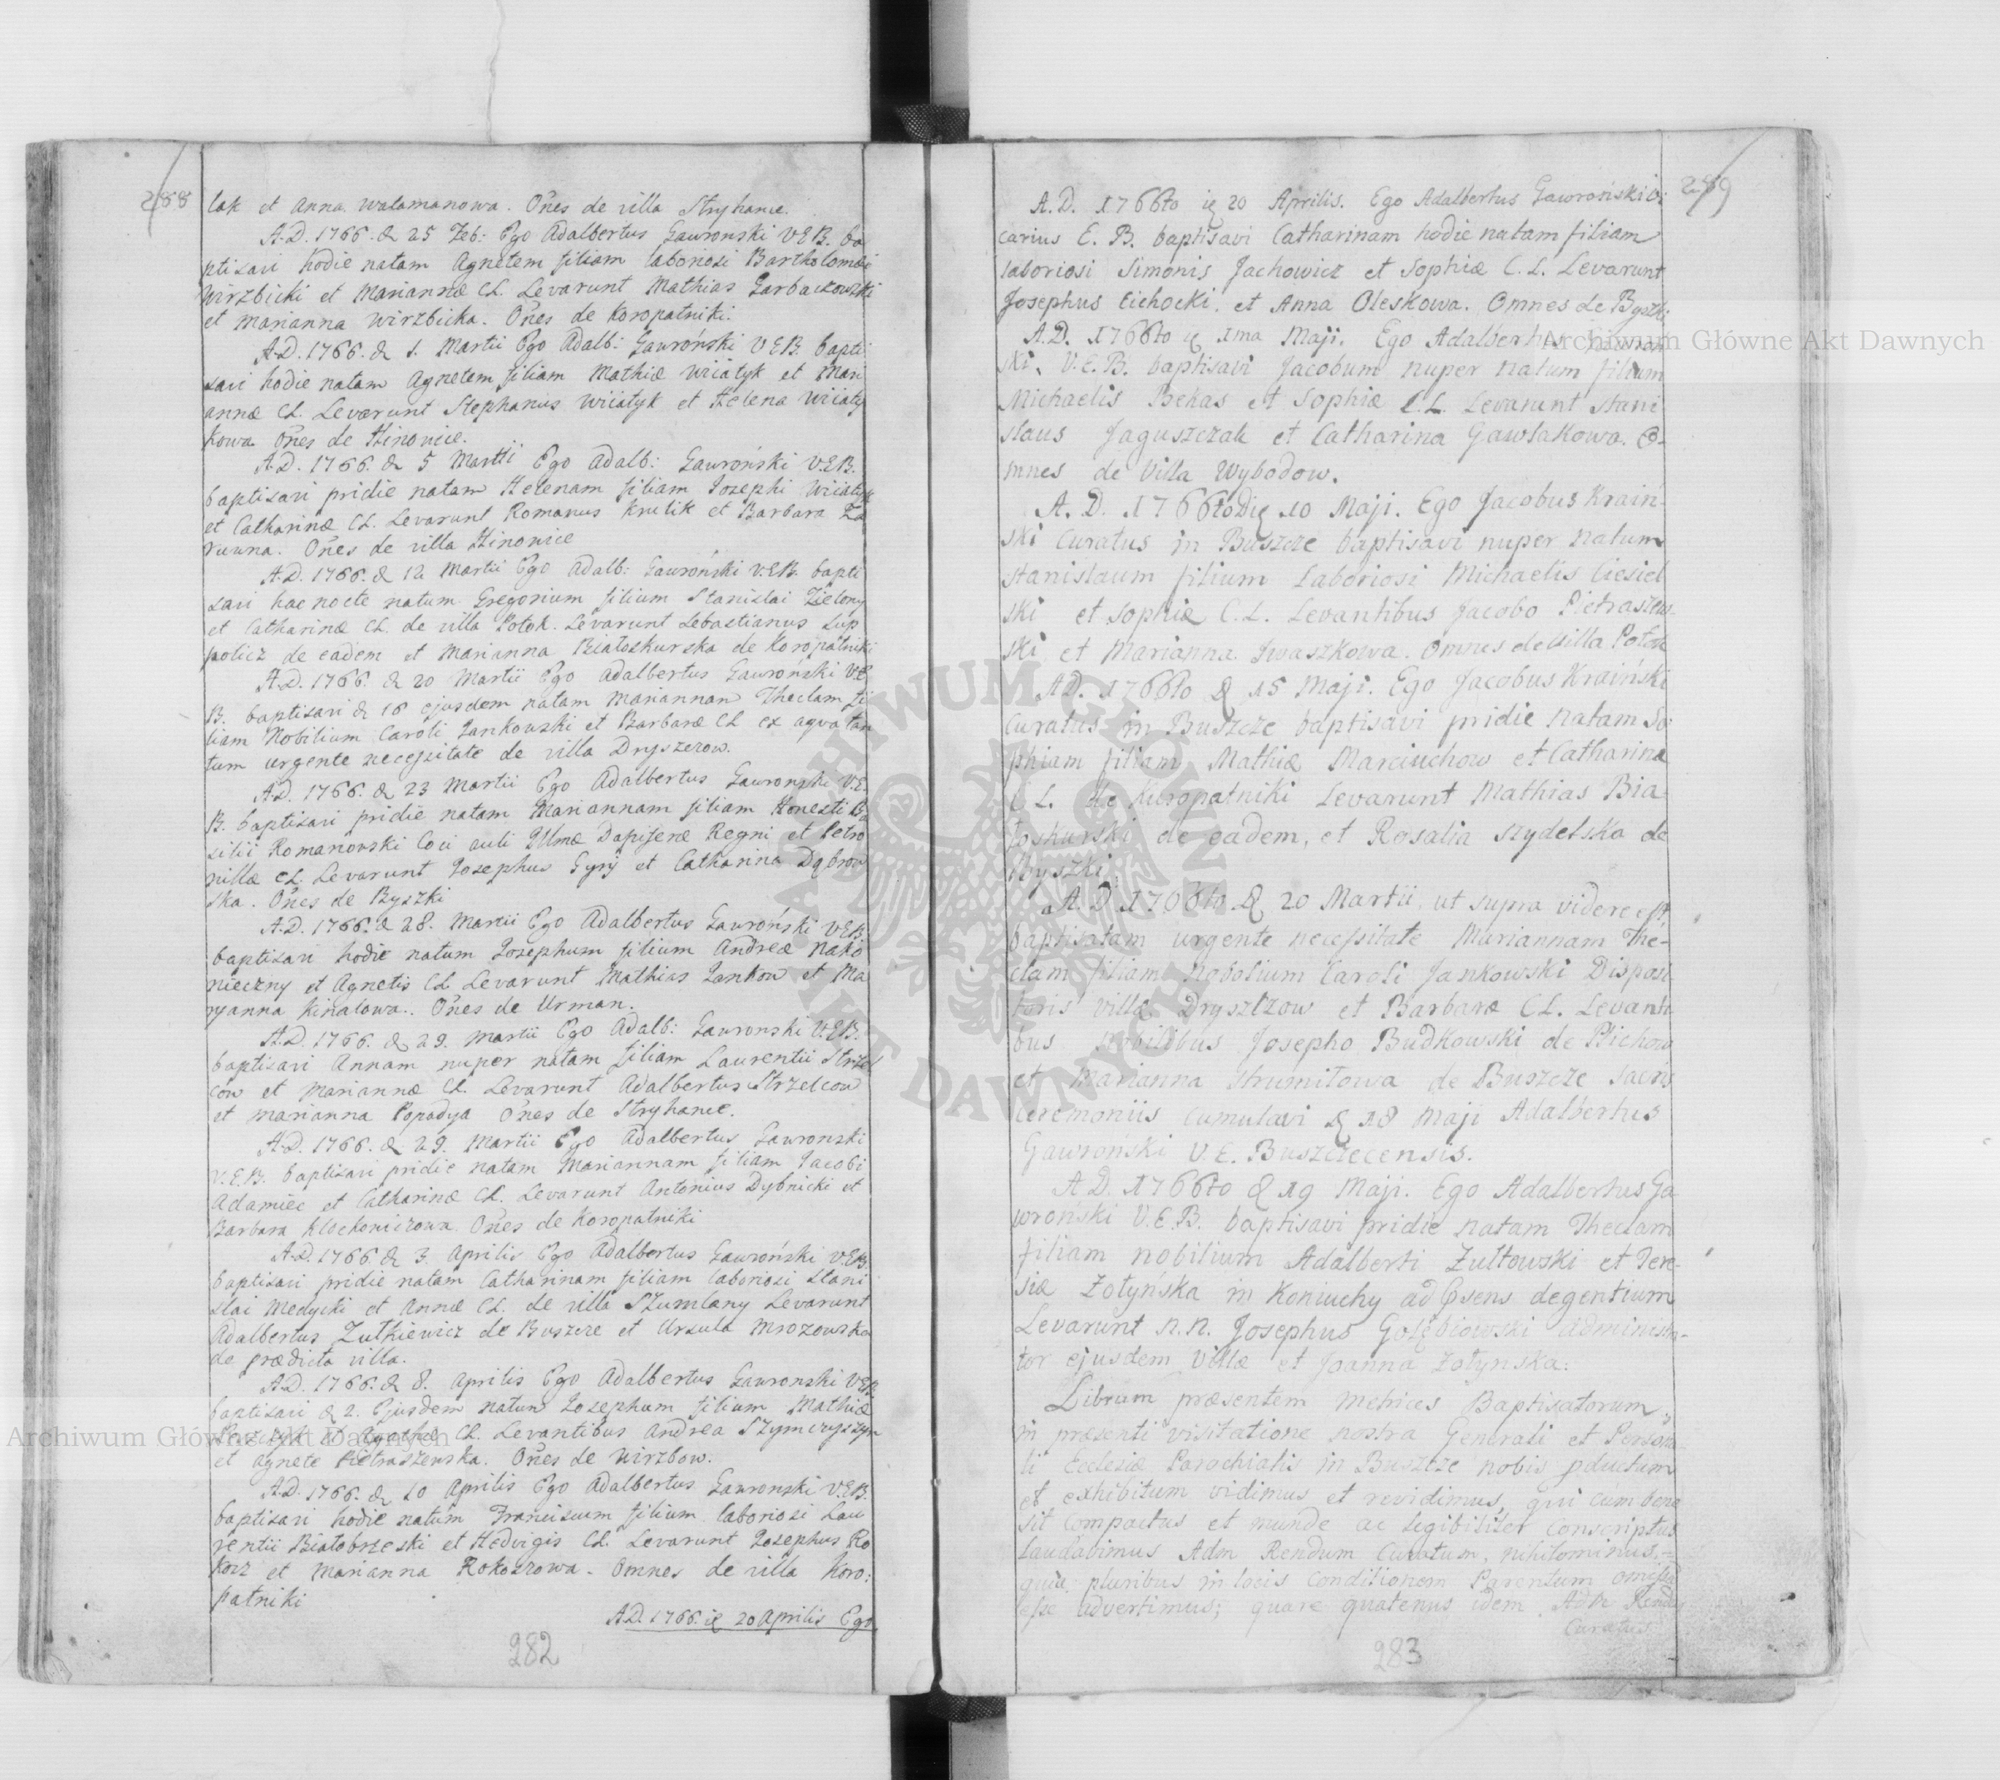 288
lak et Anna Watamanowa. Oñes de villa Stryhance.
A.D. 1766. d. 25 Feb: Ego Adalbertus Gawronski V.E.B. ba
ptisavi hodie natam Agnetem filiam laboriosi Bartholomæi
Wirzbicki et Mariannæ CL. Levarunt Mathias Garbaczowski
et Marianna Wirzbicka. Oñes de Koropatniki.
A.D. 1766. d. 1. Martii Ego Adalb: Gawroński V.E.B. bapti
savi hodie natam Agnetem filiam Mathiæ Wiiatyk et Mari
annæ CL. Levarunt Stephanus Wiiatyk et Helena Wiiaty
kowa Oñes de Hinowice.
A.D. 1766. d. 5 Martii Ego Adalb: Gawroński V.E.B.
baptisavi pridie natam Helenam filiam Josephi Wiiatyk
et Catharinæ CL. Levarunt Romanus Krutik et Barbara
Oñes de villa Hinowice
A.D. 1766. d. 12 Martii Ego Adalb: Gawroński V.E.B. bapti
savi hac nocte natum Gregorium filium Stanislai Zielony
et Catharinæ CL. de villa Potok. Levarunt Sebastianus Lup
policz de eadem et Marianna Białoskurska de Koropatniki
A.D. 1766. d. 20 Martii Ego Adalbertus Gawroński V.E.
B. baptisavi d. 18 ejusdem natam Mariannam Theclam fi
liam Nobilium Caroli Jankowski et Barbaræ CL ex aqva tan
tum urgente necessitate de villa Dryszczow.
A.D. 1766. d. 23 Martii Ego Adalbertus Gawronski V.E.
B. baptisavi pridie natam Mariannam filiam Honesti Ba
silii Romanowski Coci auli Illmæ Dapiferæ Regni et Petro
nillæ CL. Levarunt Josephus Gyry et Catharina Dąbrow
ska. Oñes de Byszki
A.D. 1766. d. 28. Martii Ego Adalbertus Gawroński V.E.B.
baptisavi hodie natum Josephum filium Andreæ Nako
nieczny et Agnetis CL Levarunt Mathias Jankow et Ma
ryanna Kikalowa. Oñes de Urman.
A.D. 1766. d. 29. Martii Ego Adalb: Gawronski V.E.B.
baptisavi Annam nuper natam filiam Laurentii Strzel
cow et Mariannæ CL. Levarunt Adalbertus Strzelcow
et Marianna Popadya Oñes de Stryhance.
A.D. 1766. d. 29. Martii Ego Adalbertus Gawronski
V.E.B. baptisavi pridie natam Mariannam filiam Jacobi
Adamiec et Catharinæ CL. Levarunt Antonius Dybnicki et
Barbara Klochowiczowa. Oñes de Koropatniki
A.D. 1766. d. 3. Aprilis Ego Adalbertus Gawroński V.E.B.
baptisavi pridie natam Catharinam filiam laboriosi Stani
slai Medycki et Annæ CL. de villa Szumlany Levarunt
Adalbertus Zutkiewicz de Buszcze et Ursula Mrozowska
de prædicta villa.
A.D. 1766. d. 8. Aprilis Ego Adalbertus Gawronski V.E.B.
baptisavi d. 2. Ejusdem natum Josephum filium Mathiæ
et Agathæ CL. Levantibus Andrea Szymczyszyn
et Agnete Pietraszewska. Oñes de Wirzbow.
A.D. 1766. d. 10 Aprilis Ego Adalbertus Gawronski V.E.B.
baptisavi hodie natum Franciscum filium laboriosi Lau
rentii Białobrzeski et Hedvigis CL. Levarunt Josephus Ro
kosz et Marianna Rokoszowa. Omnes de villa Koro:
patniki
A.D. 1766. die 20 Aprilis Ego
282
289
A.D. 1766to die 20 Aprilis. Ego Adalbertus Gawroński Vi
carius E. B. baptisavi Catharinam hodie natam filiam
laboriosi Simonis Jachowicz et Sophiæ C. L. Levarunt
Josephus Cichocki. et Anna Oleskowa. Omnes de Byszki
A.D. 1766to die 1ma Maji. Ego Adalbertus Gawron
ski, V.E.B. baptisavi Jacobum nuper natum filium
Michaelis Bekas et Sophiæ C.L. Levarunt Stani-
slaus Jaguszczak et Catharina Gawlakowa. O-
mnes de Villa Wybodow.
A. D. 1766to Die 10 Maji. Ego Jacobus Kraiń-
ski Curatus in Buszcze baptisavi nuper natum
Stanislaum filium Laboriosi Michaelis Ciesiel
ski et Sophiæ C.L. Levantibus Jacobo Pietraszew-
ski et Marianna Iwaszkowa. Omnes de Villa Potok
A.D. 1766to d. 15 Maji. Ego Jacobus Kraiński
Curatus in Buszcze baptisavi pridie natam So-
phiam filiam Mathiæ Marciuchow et Catharina
C L. de Kuropatniki Levarunt Mathias Bia-
łoskurski de eadem, et Rosalia Szydelska de
Byszki.
A.D. 1766to d. 20 Martii ut supra videre est,
baptisatam urgente necessitate Mariannam The-
clam filiam Nobolium Caroli Jankowski Disposi
toris villæ Dryszczow et Barbaræ CL. Levanti
bus Nobilibus Josepho Budkowski de Plichow
et Marianna Strumitowa de Buszcze sacris
ceremoniis cumulavi d. 18 Maji Adalbertus
Gawroński V. E. Buszczecensis.
A.D. 1766to d. 19 Maji. Ego Adalbertus Ga
wronski V.E.B. baptisavi pridie natam Theclam
filiam nobilium Adalberti Zultowski et Tere-
siæ Zołyńska in Koniuchy ad Psens degentium
Levarunt N.N. Josephus Gołębiowski Administra-
tor ejusdem Villæ et Joanna Zołynska.
Librum præsentem Metrices Baptisatorum
in præsenti visitatione nostra Generali et Persona-
li Ecclesiæ Parochialis in Buszcze nobis pductum
et exhibitum vidimus et revidimus, qui cum bene
sit compactus et munde ac legibiliter conscriptus
laudavimus Adm Rendum Curatum, nihilominus
quia pluribus in locis conditionem Parentum omissam
esse advertimus; quare quatenus idem Adm Rendus
Curatus
283
Archiwum Główne Akt Dawnych
Archiwum Główne Akt Dawnych
ARCHIWUM GŁÓWNE AKT DAWNYCH